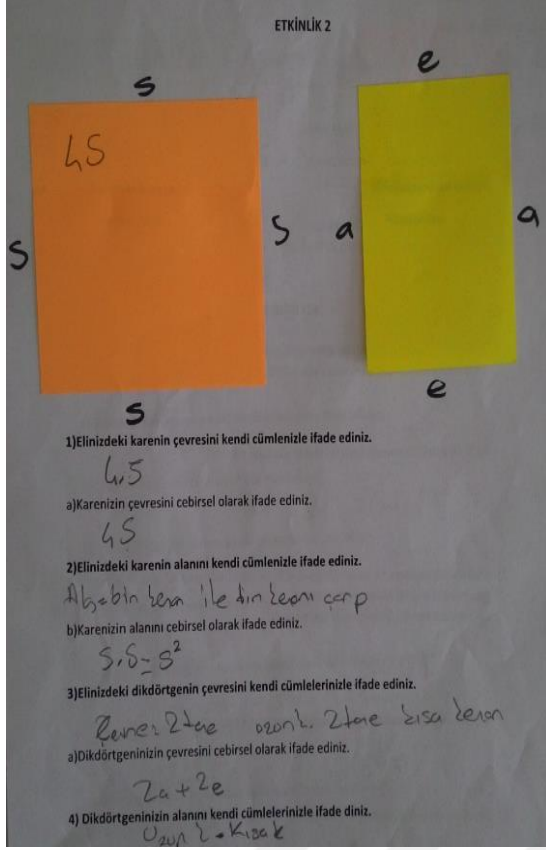 ETKİNLİK 2
s
e
4S
S
S
a
a
s
e
1)Elinizdeki karenin çevresini kendi cümlenizle ifade ediniz.
4.S
a)Karenizin çevresini cebirsel olarak ifade ediniz.
4S
2)Elinizdeki karenin alanını kendi cümlenizle ifade ediniz.
ile çarp
b)Karenizin alanını cebirsel olarak ifade ediniz.
S.S=S²
3)Elinizdeki dikdörtgenin çevresini kendi cümlelerinizle ifade ediniz.
2 tane 2 tane kısa kenar
a)Dikdörtgeninizin çevresini cebirsel olarak ifade ediniz.
2a+2e
4) Dikdörtgeninizin alanını kendi cümlelerinizle ifade diniz.